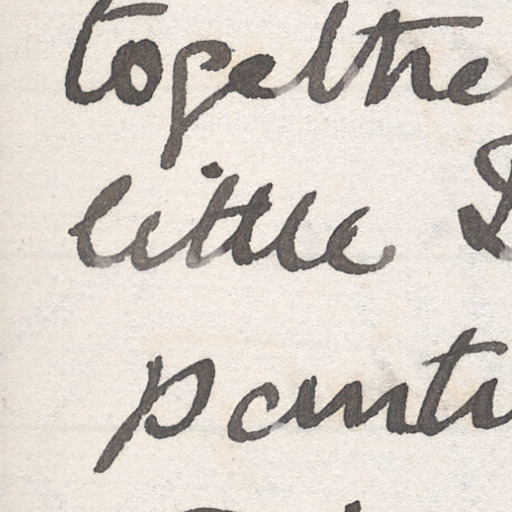 togethe
little
painti